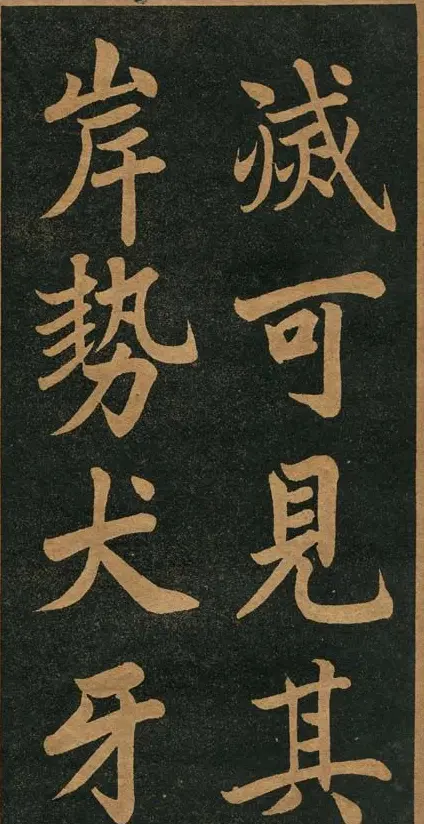 滅可見其
岸勢犬牙